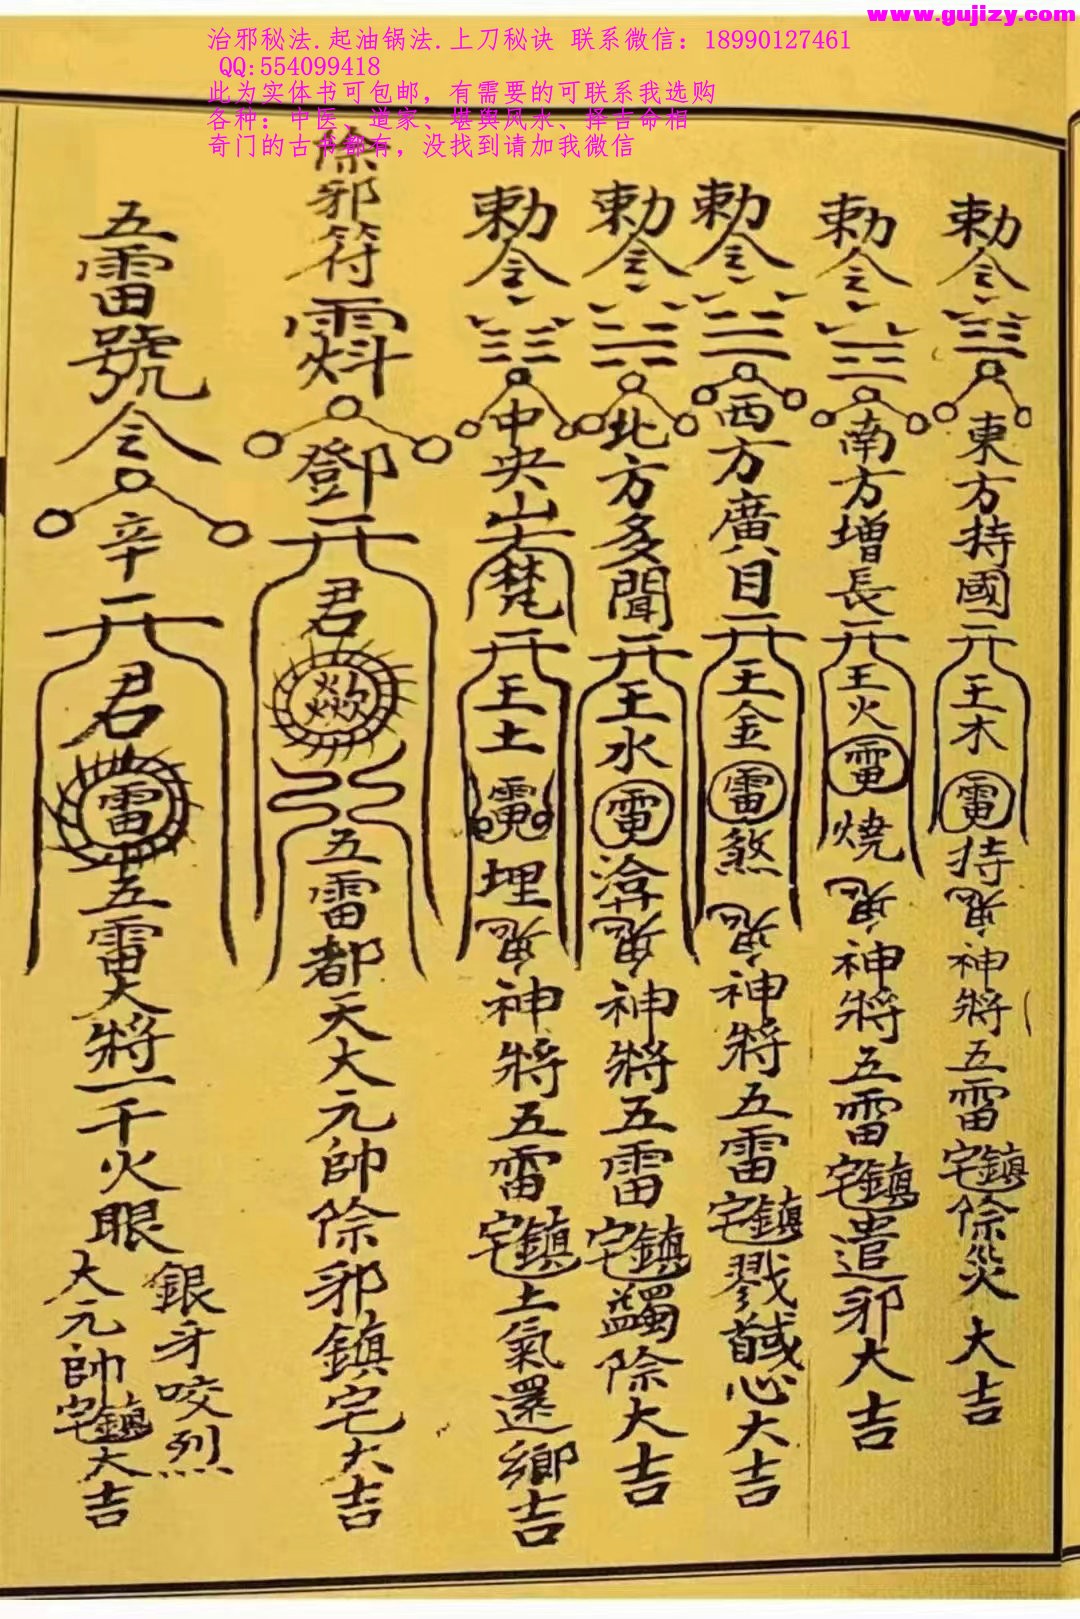 www.gujizy.com
治邪秘法.起油锅法.上刀秘诀 联系微信：18990127461
QQ:554099418
此为实体书可包邮，有需要的可联系我选购
各种：中医、道家、堪舆风水、择吉命相
奇门的古书都有，没找到请加我微信
勅令東方持國王木雷持神將五雷鎮宅除災大吉
勅令南方增長王火雷燒神將五雷鎮宅遣邪大吉
勅令西方廣目王金雷煞神將五雷鎮宅戮馘心大吉
勅令北方多聞王水雷神將五雷鎮宅蠲除大吉
勅令中央梵王土埋神將五雷鎮宅土氣還鄉吉
除邪符
鄧君欻五雷都天大元帥除邪鎮宅大吉
五雷號令辛君雷五雷大將千火眼
銀牙咬烈
大元帥鎮宅大吉